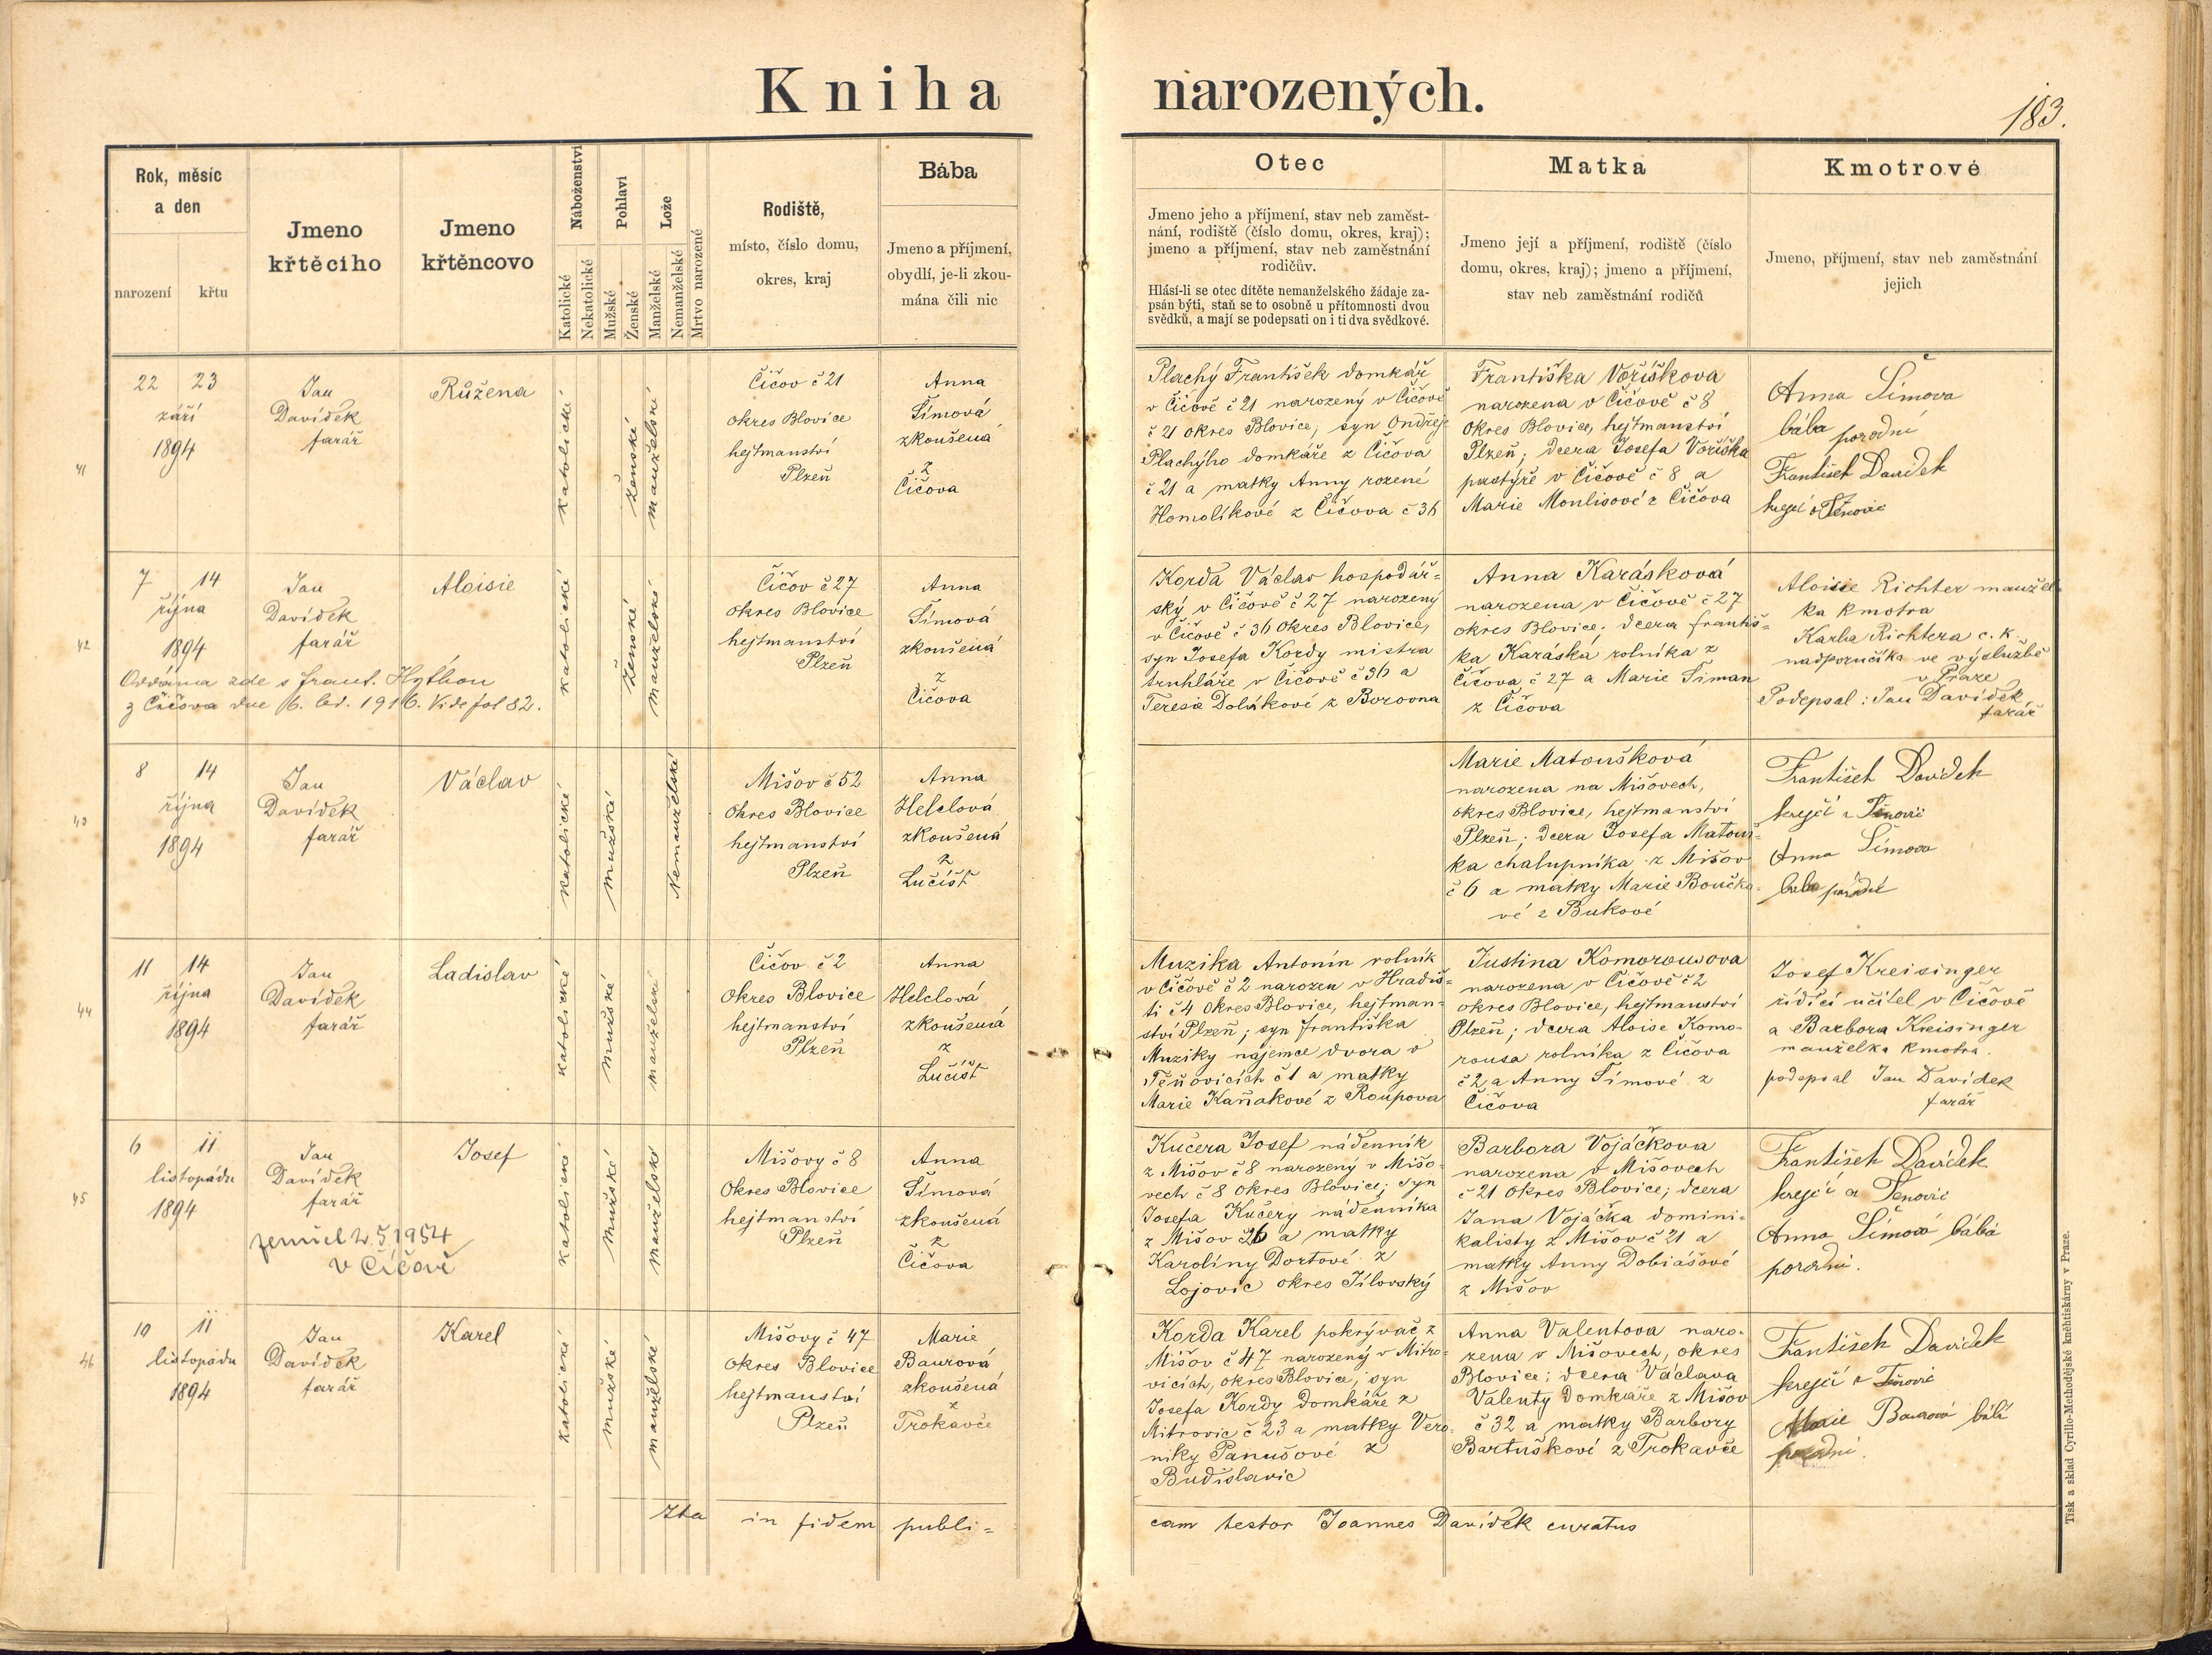 Kniha narozených.
183.
Rok, měsíc
a den
narození
křtu
Jmeno
křtěcího
Jmeno
křtěncovo
Náboženství
Katolické
Nekatolické
Pohlaví
Mužské
Ženské
Lože
Manželské
Nemanželské
Mrtvo narozené
Rodiště,
místo, číslo domu,
okres, kraj
Bába
Jmeno a příjmení,
obydlí, je-li zkou-
mána čili nic
Otec
Jmeno jeho a příjmení, stav neb zaměst-
nání, rodiště (číslo domu, okres, kraj);
jmeno a příjmení, stav neb zaměstnání
rodičův.
Hlásí-li se otec dítěte nemanželského žádaje za-
psán býti, staň se to osobně u přítomnosti dvou
svědků, a mají se podepsati on i ti dva svědkové.
Matka
Jmeno její a příjmení, rodiště (číslo
domu, okres, kraj); jmeno a příjmení,
stav neb zaměstnání rodičů
Kmotrové
Jmeno, příjmení, stav neb zaměstnání
jejich
41
22 23
září
1894
Jan
Davídek
farář
Růžena
katolické
ženské
manželské
Čičov č 21
okres Blovice
hejtmanství
Plzeň
Anna
Šímová
zkoušená
z
Čičova
Plachý František domkář
v Čičově č 21 narozený v Čičově
č 21 okres Blovice, syn Ondřeje
Plachýho domkáře z Čičova
č 21 a matky Anny rozené
Homolíkové z Čičova č 36
Františka Voříškova
narozena v Čičově č 8
okres Blovice, hejtmanství
Plzeň; dcera Josefa Voříška
pastýře v Čičově č 8 a
Marie Moulisové z Čičova
Anna Šímova
bába porodní
František Davídek
krejčí
42
7 14
října
1894
Jan
Davídek
farář
Aloisie
katolické
ženské
manželské
Čičov č 27
okres Blovice
hejtmanství
Plzeň
Anna
Šímová
zkoušená
z
Čičova
Oddána zde s Frant. Hýthou
z Čičova dne 6. led. 1916. Vide fol 82.
Korda Václav hospodář-
ský v Čičově č 27 narozený
v Čičově č 36 okres Blovice,
syn Josefa Kordy mistra
truhláře v Čičově č 36 a
Teresa Dolákové z Borovna
Anna Karásková
narozena v Čičově č 27
okres Blovice. dcera Františ-
ka Karáska rolníka z
Čičova č 27 a Marie Šiman
z Čičova
Aloisie Richter manžel-
ka kmotra
Karla Richtera c. k.
nadporučíka ve výslužbě
v Praze
Podepsal: Jan Davídek
farář
43
8 14
října
1894
Jan
Davídek
farář
Václav
katolické
mužské
Nemanželské
Mišov č 52
okres Blovice
hejtmanství
Plzeň
Anna
Helclová
zkoušená
z
Lučišť
Marie Matoušková
narozena na Mišovech,
okres Blovice, hejtmanství
Plzeň; dcera Josefa Matouš-
ka chalupníka z Mišov
č 6 a matky Marie Boučko-
vé z Bukové
František Davídek
krejčí z Těnovic
Anna Šímova
baba porodní
44
11 14
října
1894
Jan
Davídek
farář
Ladislav
katolické
mužské
manželské
Čičov č 2
okres Blovice
hejtmanství
Plzeň
Anna
Helclová
zkoušená
z
Lučišť
Muzika Antonín rolník
v Čičově č 2 narozen v Hradiš-
ti č 4 okres Blovice, hejtman-
ství Plzeň; syn Františka
Muziky nájemce dvora v
Těňovicích č 1 a matky
Marie Kaňakové z Roupova
Justina Komorousova
narozena v Čičově č 2
okres Blovice, hejtmanství
Plzeň; dcera Aloise Komo-
rousa rolníka z Čičova
č 2 a Anny Šímové z
Čičova
Josef Kreisinger
řídící učitel v Čičově
a Barbora Kreisinger
manželka kmotra.
podepsal Jan Davídek
farář
45
6 11
listopadu
1894
Jan
Davídek
farář
Josef
katolické
mužské
manželské
Mišovy č 8
okres Blovice
hejtmanství
Plzeň
Anna
Šímová
zkoušená
z
Čičova
zemřel 2.5.1954
v Čičově
Kučera Josef nádenník
z Mišov č 8 narozený v Mišo-
vech č 8 okres Blovice; syn
Josefa Kučery nádenníka
z Mišov 26 a matky
Karolíny Dortové z
Lojovic okres Jílovský
Barbora Vojáčkova
narozena v Mišovech
č 21 okres Blovice; dcera
Jana Vojáčka domini-
kalisty z Mišov č 21 a
matky Anny Dobiášové
z Mišov
František Davídek
krejčí z Těnovic
Anna Šímová bába
porodní.
46
10 11
listopadu
1894
Jan
Davídek
farář
Karel
katolické
mužské
manželské
Mišovy č 47
okres Blovice
hejtmanství
Plzeň
Marie
Baurová
zkoušená
z
Trokavče
Korda Karel pokrývač z
Mišov č 47 narozený v Mitro-
vicích, okres Blovice, syn
Josefa Kordy domkáře z
Mitrovic č 23 a matky Vero-
niky Panušové z
Budislavic
Anna Valentova naro-
zena v Mišovech, okres
Blovice; dcera Václava
Valenty domkáře z Mišov
č 32 a matky Barbory
Bartuškové z Trokavče
František Davídek
krejčí z Těnovic
Marie Baurová bába
porodní.
Ita in fidem publi-
cam testor Joannes Davídek curatus
Tisk a sklad Cyrillo-Methodějské knihtiskárny v Praze.